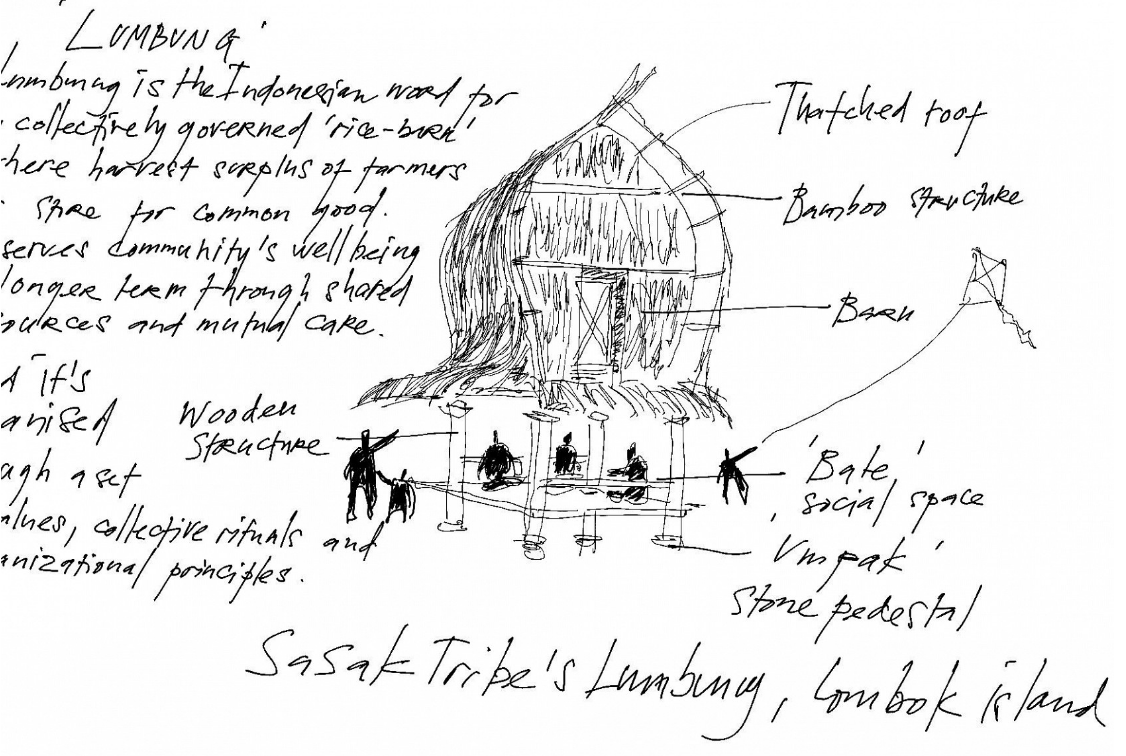 'LUMBUNG'
Lumbung is the Indonesian word for
collectively governed 'rice-barn'
here harvest surplus of farmers
store for common good.
serves community's well being
longer term through shared
ources and mutual care.
d it's
anised
ugh a set
alues, collective rituals and
anizational principles.
Thatched roof
Bamboo structure
Barn
Wooden
Structure
'Bale'
social space
'Umpak'
Stone pedestal
Sasak Tribe's Lumbung, Lombok island